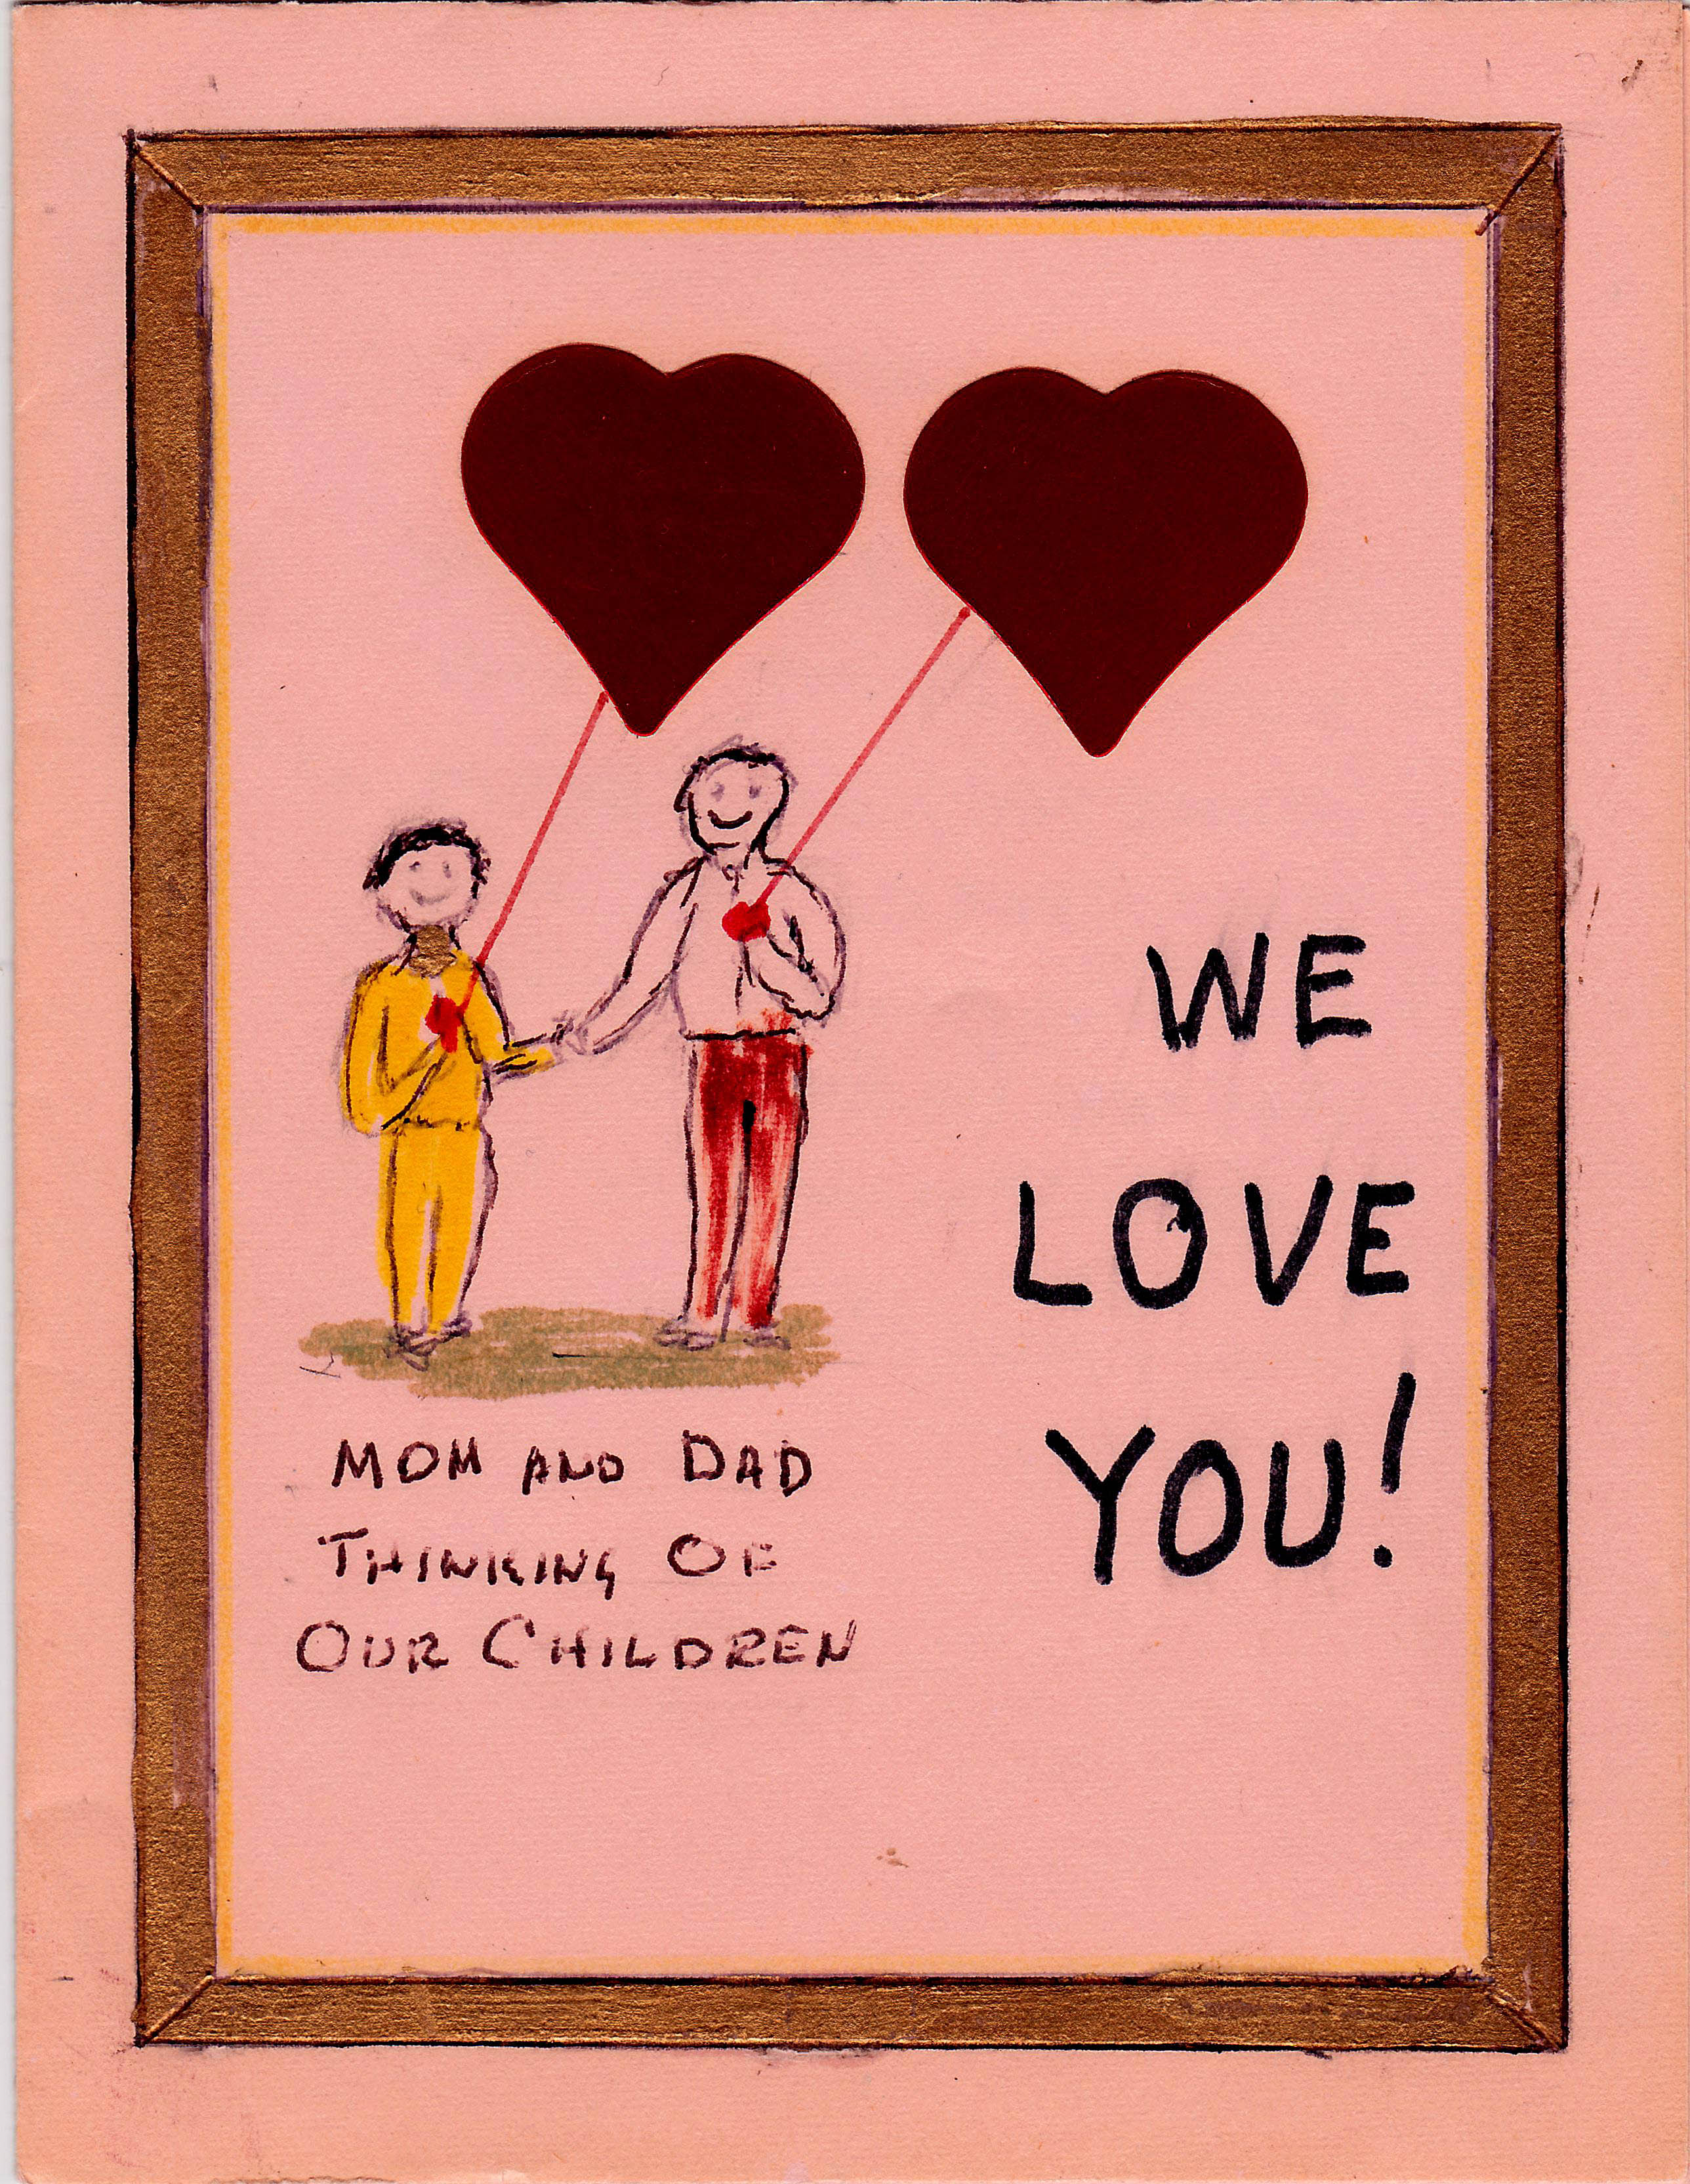 WE
LOVE
YOU!
MOM AND DAD
THINKING OF
OUR CHILDREN